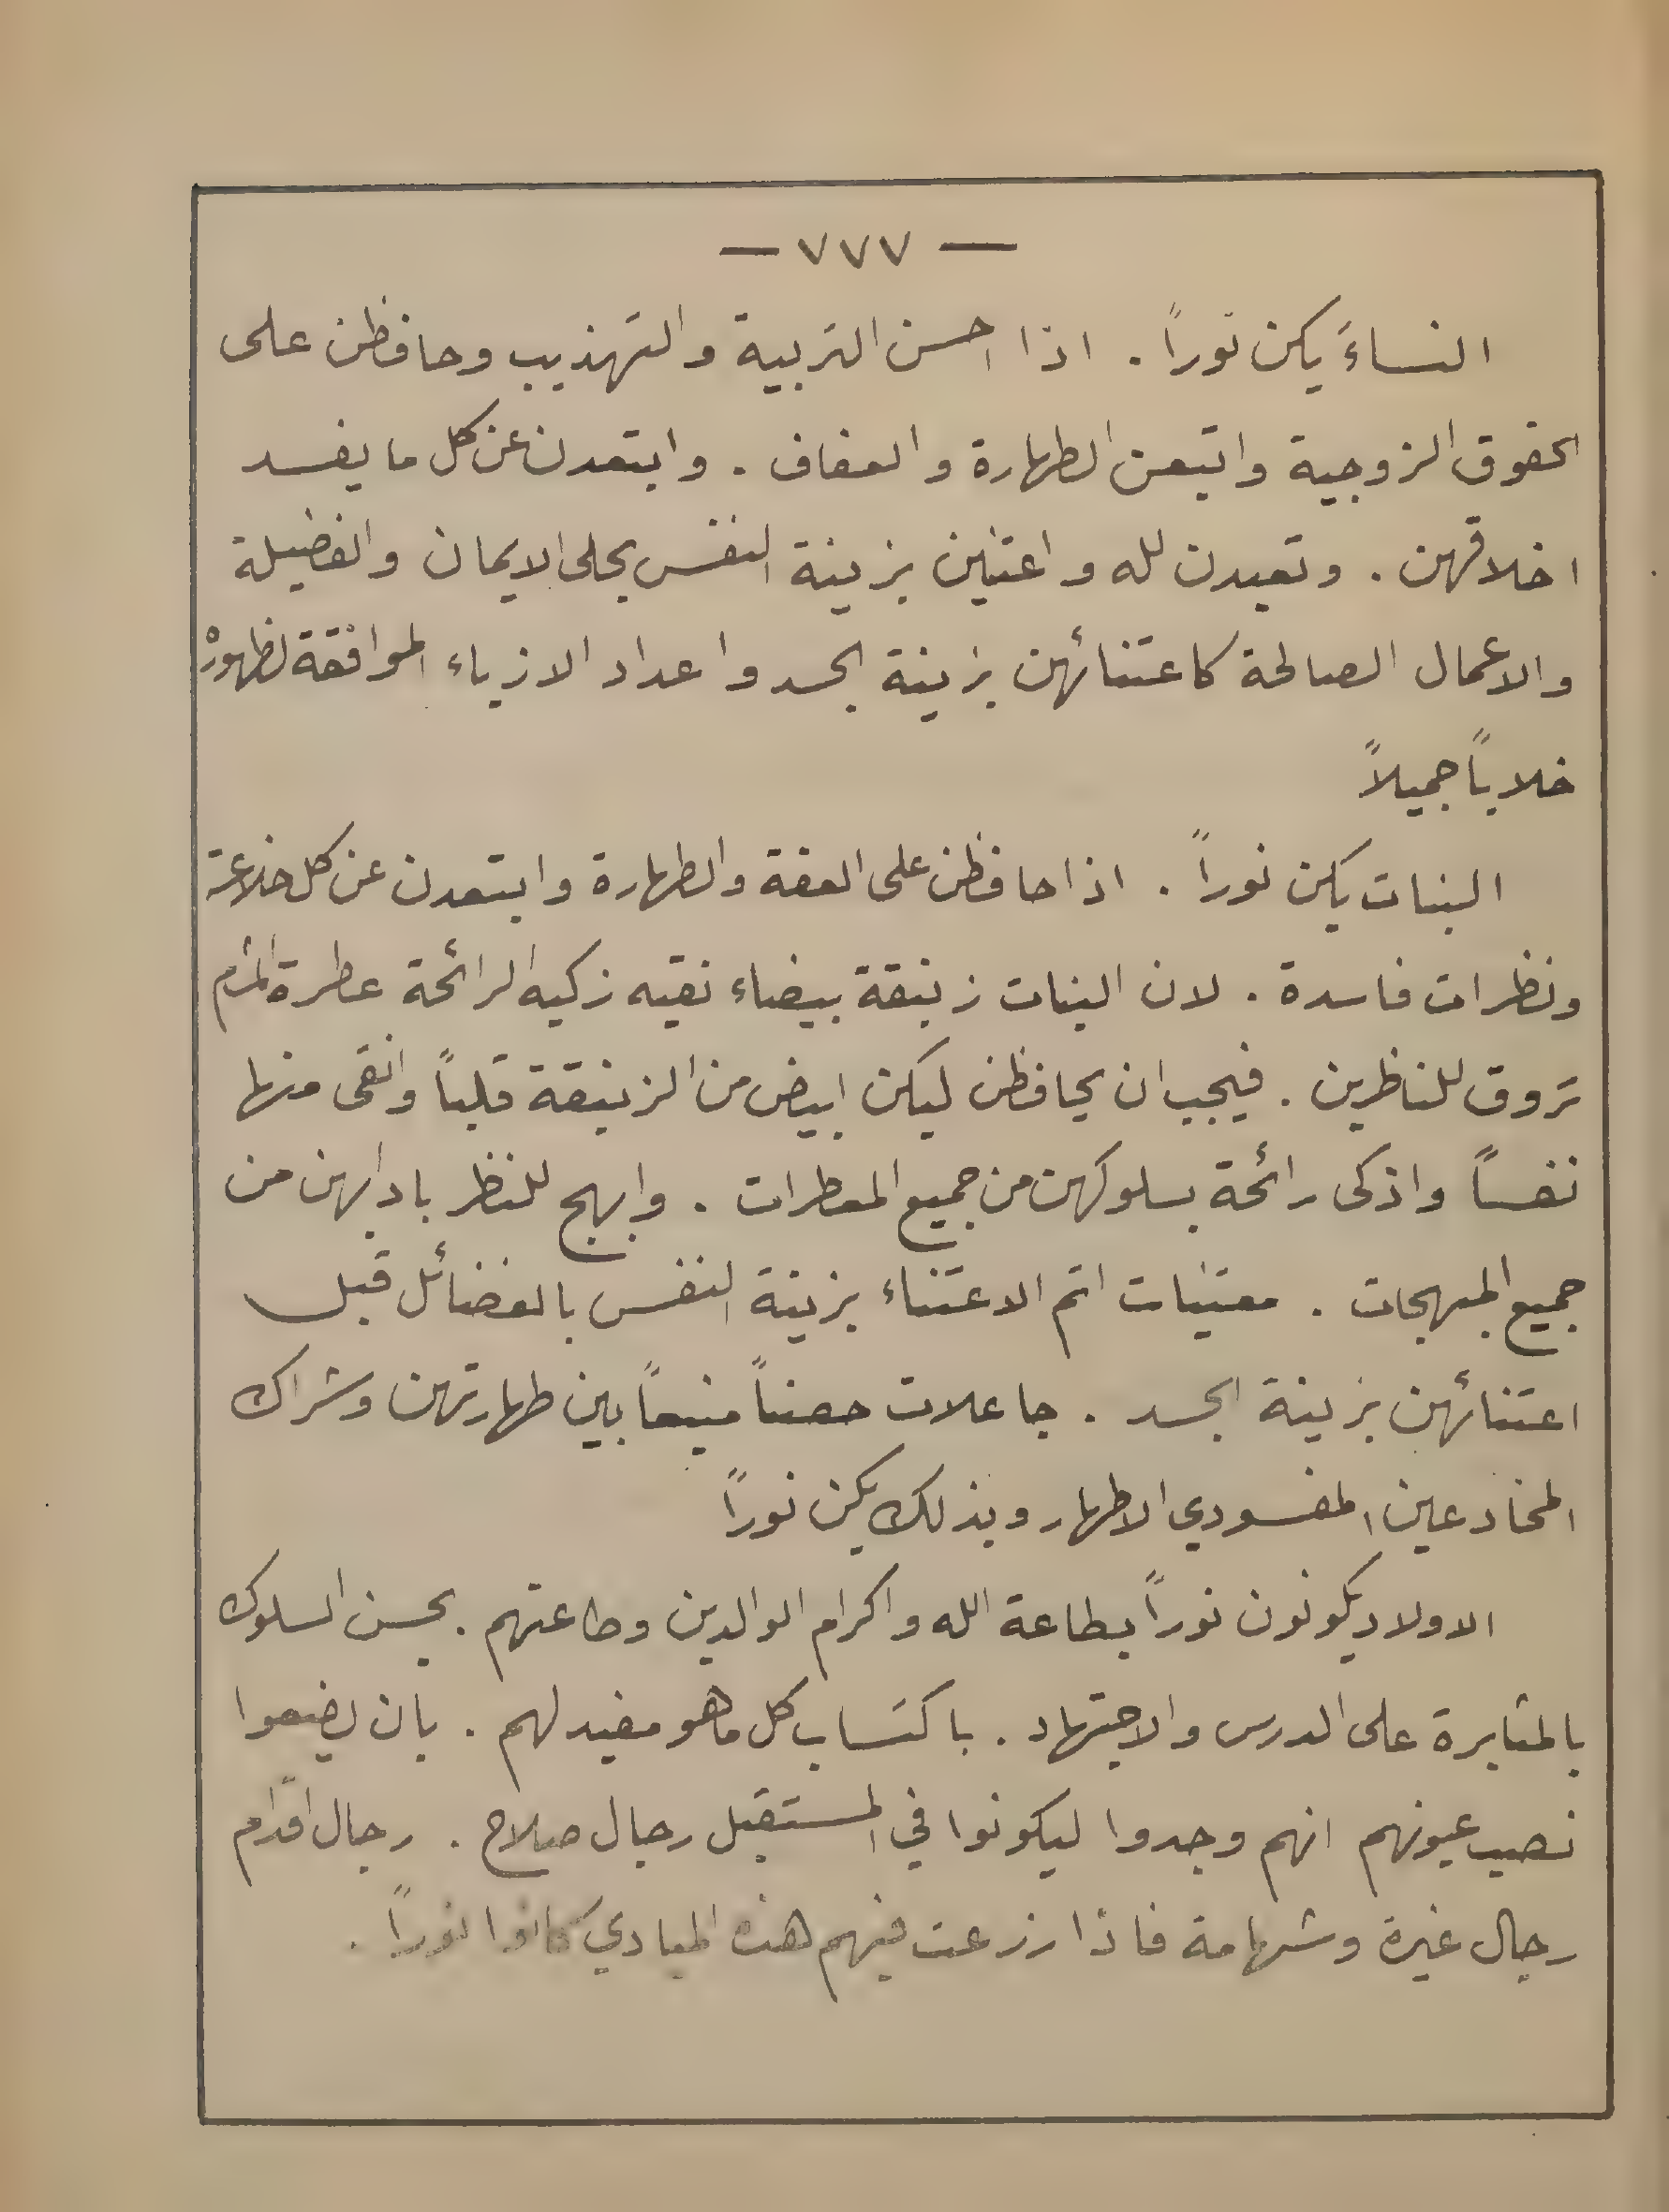 — ٧٧٧ —
النساءَ يكن نوراً . اذا احسن التربية والتهذيب وحافظن على
الحقوق الزوجية واتبعن الطهارة والعفاف . وابتعدن عن كل ما يفسد
اخلاقهن . وتعبدن لله واعتنين بزينة النفس بحلى الايمان والفضيلة
والاعمال الصالحة كاعتنائهن بزينة الجسد واعداد الازياء الموافقة لظهور
خلاباً جميلاً
البنات يكن نوراً . اذا حافظن على العفة والطهارة وابتعدن عن كل خلاعة
ونظرات فاسدة . لان البنات زنبقة بيضاء نقيه زكيه الرائحة عطرة المشم
تروق للناظرين . فيجب ان يحافظن ليكن ابيض من الزنبقة قلباً وانقى منها
نفساً واذكى رائحة بسلوكهن من جميع المعطرات . وابهج للنظر بادابهن من
جميع المبهجات . معتنيات اتم الاعتناء بزينة النفس بالفضائل قبل
اعتنائهن بزينة الجسد . جاعلات حصناً منيعاً بين طهارتهن وشراك
المخادعين المفسودي الاطهار وبذلك يكن نوراً
الاولاد يكونون نوراً بطاعة الله واكرام الوالدين وطاعتهم . بحسن السلوك
بالمثابرة على الدرس والاجتهاد . باكتساب كل ما هو مفيد لهم . بان يضعوا
نصب عيونهم انهم وجدوا ليكونوا في المستقبل رجال صلاح . رجال اقدام
رجال غيرة وشهامة فاذا زرعت فيهم هذه المبادي كانوا نوراً .